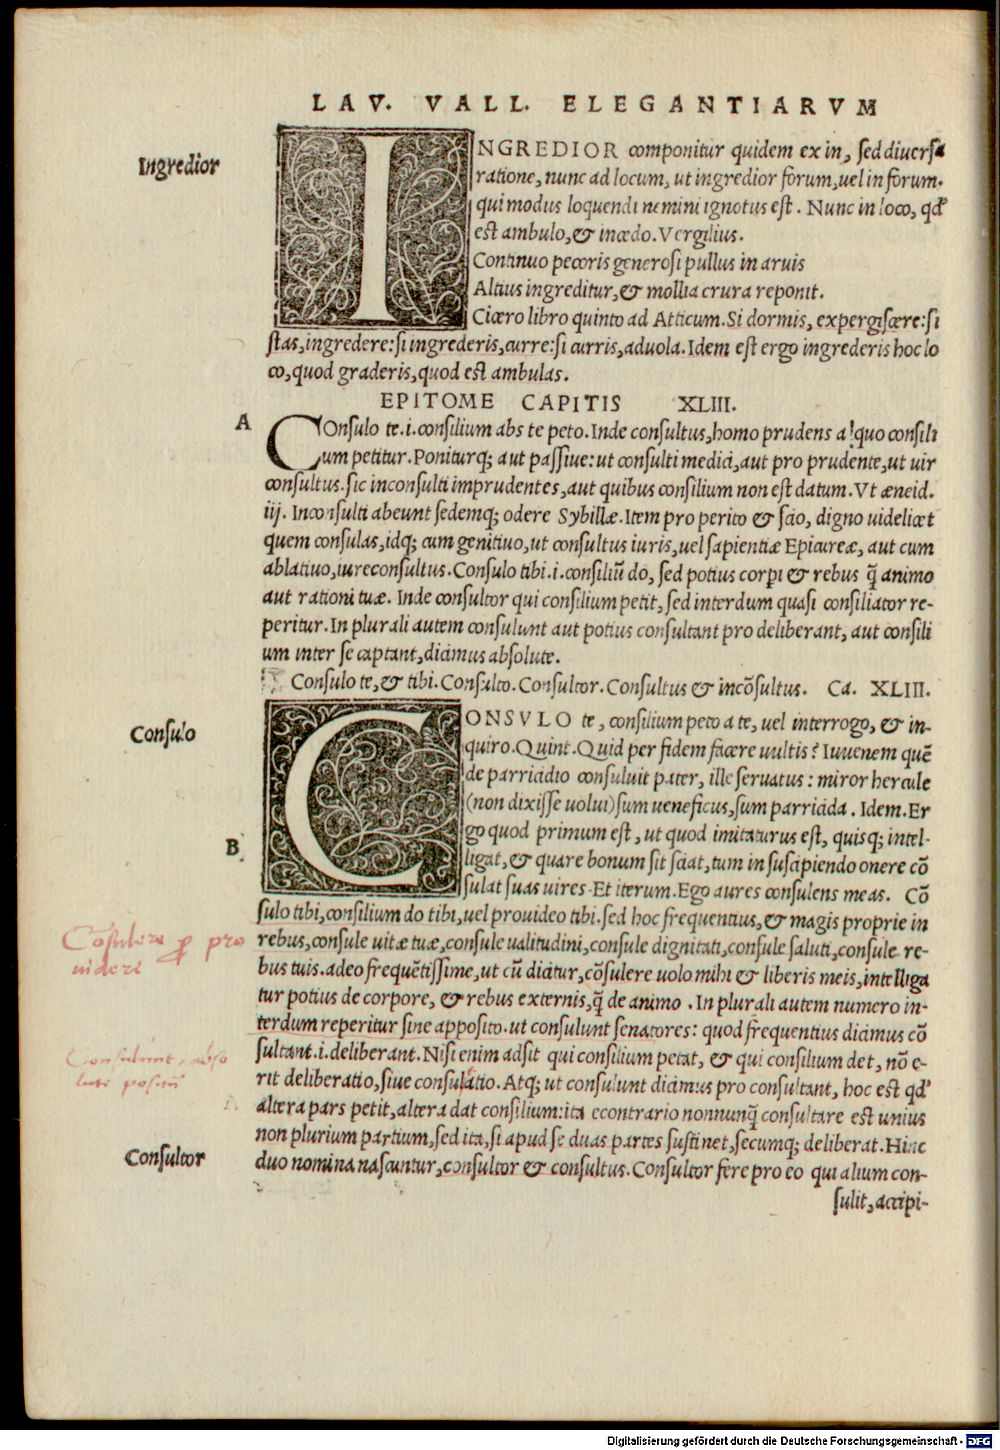 LAV. VALL. ELEGANTIARVM
Ingredior
INGREDIOR componitur quidem ex in, sed diuersa
ratione, nunc ad locum, ut ingredior forum, uel in forum.
qui modus loquendi nemini ignotus est. Nunc in loco, qđ
est ambulo, & incedo. Vergilius.
Continuo pecoris generosi pullus in aruis
Altius ingreditur, & mollia crura reponit.
Cicero libro quinto ad Atticum. Si dormis, expergiscere: si
stas, ingredere: si ingrederis, curre: si curris, aduola. Idem est ergo ingrederis hoc lo
co, quod graderis, quod est ambulas.
EPITOME CAPITIS XLIII.
A
COnsulo te. i. consilium abs te peto. Inde consultus, homo prudens a quo consili
um petitur. Poniturq; aut passiue: ut consulti medici, aut pro prudente, ut uir
consultus. sic inconsulti imprudentes, aut quibus consilium non est datum. Vt æneid.
iij. Inconsulti abeunt sedemq; odere Sybillæ. Item pro perito & scio, digno uidelicet
quem consulas, idq; cum genitiuo, ut consultus iuris, uel sapientiæ Epicureæ, aut cum
ablatiuo, iureconsultus. Consulo tibi. i. consiliū do, sed potius corpi & rebus q̃ animo
aut rationi tuæ. Inde consultor qui consilium petit, sed interdum quasi consiliator re-
peritur. In plurali autem consulunt aut potius consultant pro deliberant, aut consili
um inter se captant, dicimus absolute.
Consulo te, & tibi. Consulto. Consultor. Consultus & incōsultus. Ca. XLIII.
Consulo
CONSVLO te, consilium peto a te, uel interrogo, & in-
quiro. Quint. Quid per fidem facere uultis? Iuuenem quē
de parricidio consuluit pater, ille seruatus: miror hercule
(non dixisse uolui) sum ueneficus, sum parricida. Idem. Er
go quod primum est, ut quod imitaturus est, quisq; intel-
B
ligat, & quare bonum sit sciat, tum in suscipiendo onere cō
sulat suas uires. Et iterum. Ego aures consulens meas. Cō
sulo tibi, consilium do tibi, uel prouideo tibi. sed hoc frequentius, & magis proprie in
Cōsulere ꝓ pro
uidere
rebus, consule uitæ tuæ, consule ualitudini, consule dignitati, consule saluti, consule re-
bus tuis. adeo frequētissime, ut cū dicitur, cōsulere uolo mihi & liberis meis, intelliga
tur potius de corpore, & rebus externis, q̃ de animo. In plurali autem numero in-
terdum reperitur sine apposito. ut consulunt senatores: quod frequentius dicimus cō
Consulunt, abso
lute positū
sultant. i. deliberant. Nisi enim adsit qui consilium petat, & qui consilium det, nō e-
rit deliberatio, siue consulatio. Atq; ut consulunt dicimus pro consultant, hoc est qđ
altera pars petit, altera dat consilium: ita econtrario nonnunq̃ consultare est unius
non plurium partium, sed ita, si apud se duas partes sustinet, secumq; deliberat. Hinc
Consultor
duo nomina nascuntur, consultor & consultus. Consultor fere pro eo qui alium con-
sulit, accipi-
Digitalisierung gefördert durch die Deutsche Forschungsgemeinschaft - DFG